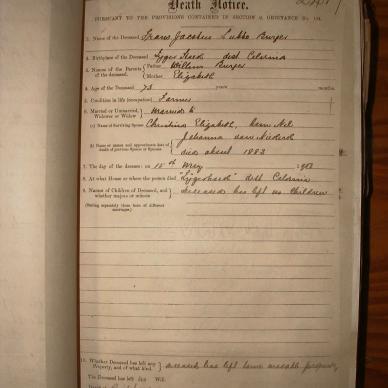 Death Notice.
PURSUANT TO THE PROVISIONS CONTAINED IN SECTION ORDINANCE No. 104.
1. Name of the Deceased Frans Jacobus Lubbe Burger
2. Birthplace of the Deceased dist Calvinia
3. Names of the Parents of the deceased. Father Willem Burger
Mother Elizabeth
4. Age of the Deceased 73 years months
5. Condition in life (occupation) Farmer
6. Married or Unmarried, Widower or Widow Married to
(a) Name of Surviving Spouse Christina Elizabeth, born Nel
(b) Name or names and approximate date of death of previous Spouse or Spouses Johanna van Niekerk
died about 1883
7. The day of the decease: on 15th May
8. At what House or where the person died dist Calvinia
9. Names of Children of Deceased, and whether majors or minors deceased has left no children
(Stating separately those born of different marriages.)
10. Whether Deceased has left any Property, and of what kind. deceased has left some movable property
The Deceased has left Will.